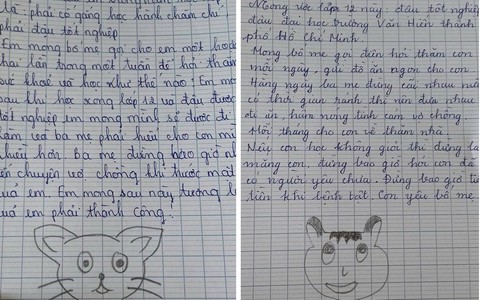 là phải cố gắng học hành chăm chỉ
phải đậu tốt nghiệp
Em mong bố mẹ gọi cho em một hoặc
hai lần trong một tuần để hỏi thăm
sức khoẻ và học như thế nào? Em mong
sau khi học xong lớp 12 và đậu được
tốt nghiệp em mong mình sẽ được đi
làm và ba mẹ phải hiểu cho con mình
nhiều hơn. ba mẹ đừng bao giờ nh
đến chuyện vợ chồng khi trước mặt
quá em. Em mong sau này tương l
quả em phải thành công.
Mong ước lớp 12 này. đậu tốt nghiệp
đậu đại học trường Văn Hiến thành
phố Hồ Chí Minh.
Mong bố mẹ gọi điện hỏi thăm con
mỗi ngày, gửi đồ ăn ngon cho con.
Hằng ngày ba mẹ đừng cãi nhau nữa
có thời gian rảnh thì nên đưa nhau
đi ăn, hâm nóng tình cảm vợ chồng.
Mỗi tháng cho con về thăm nhà.
Nếu con học không giỏi thì đừng la
mắng con, đừng bao giờ hỏi con đã
có người yêu chưa. Đừng bao giờ tiế
tiền khi bệnh tật. Con yêu bố mẹ